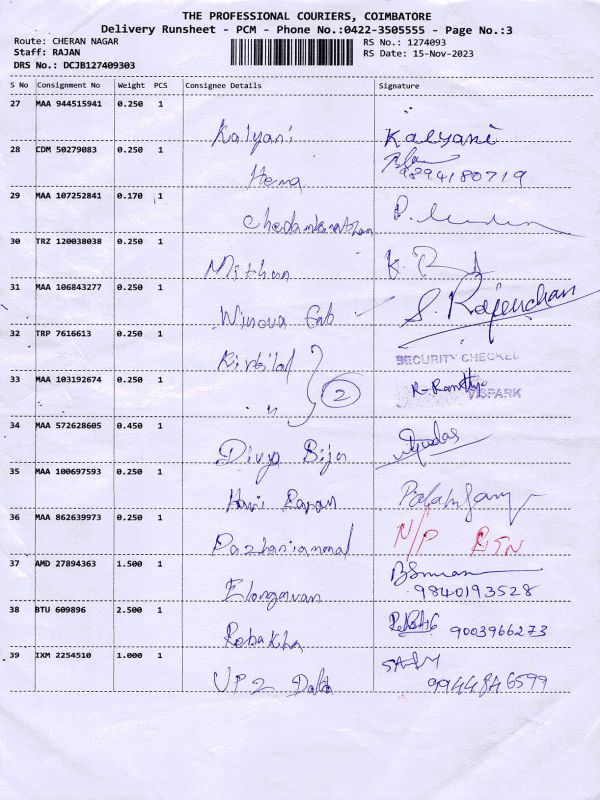 THE PROFESSIONAL COURIERS, COIMBATORE
Delivery Runsheet - PCM - Phone No.:0422-3505555 - Page No.:3
Route: CHERAN NAGAR RS No.: 1274093
Staff: RAJAN RS Date: 15-Nov-2023
DRS No.: DCJB127409303
S No Consignment No Weight PCS Consignee Details Signature
27 MAA 944515941 0.250 1
Kalyani Kalyani
28 CDM 50279083 0.250 1
Hema 9894180719
29 MAA 107252841 0.170 1
P.
30 TRZ 120038038 0.250 1
Mithun K.
31 MAA 106843277 0.250 1
Winova S. Rajendran
32 TRP 7616613 0.250 1
SECURITY CHECKED
33 MAA 103192674 0.250 1
" 2 R- VISPARK
34 MAA 572628605 0.450 1
Divya Biju
35 MAA 100697593 0.250 1
Hari
36 MAA 862639973 0.250 1
Pazhaniammal N/P RTN
37 AMD 27894363 1.500 1
Elangovan 9840193528
38 BTU 609896 2.500 1
Rebakha 9003966273
39 IXM 2254510 1.000 1
UP2 Data 9944846599